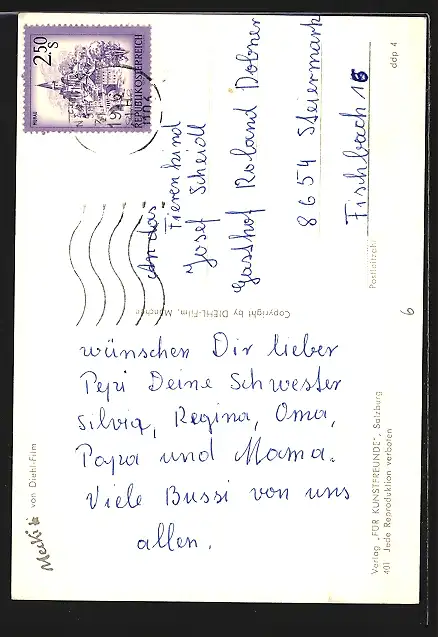 2.50
S
REPUBLIK ÖSTERREICH
MURAU
An das
Ferienkind
Josef Scheidl
Gasthof Roland Dobner
8654 Steiermark
Fischbach 16
Postleitzahl
ddp 4
6
Copyright by DIEHL-Film, München
wünschen Dir lieber
Pepi Deine Schwester
Silvia, Regina, Oma,
Papa und Mama.
Viele Bussi von uns
allen.
Mecki
von Diehl-Film
Verlag „FÜR KUNSTFREUNDE“, Salzburg
401 Jede Reproduktion verboten